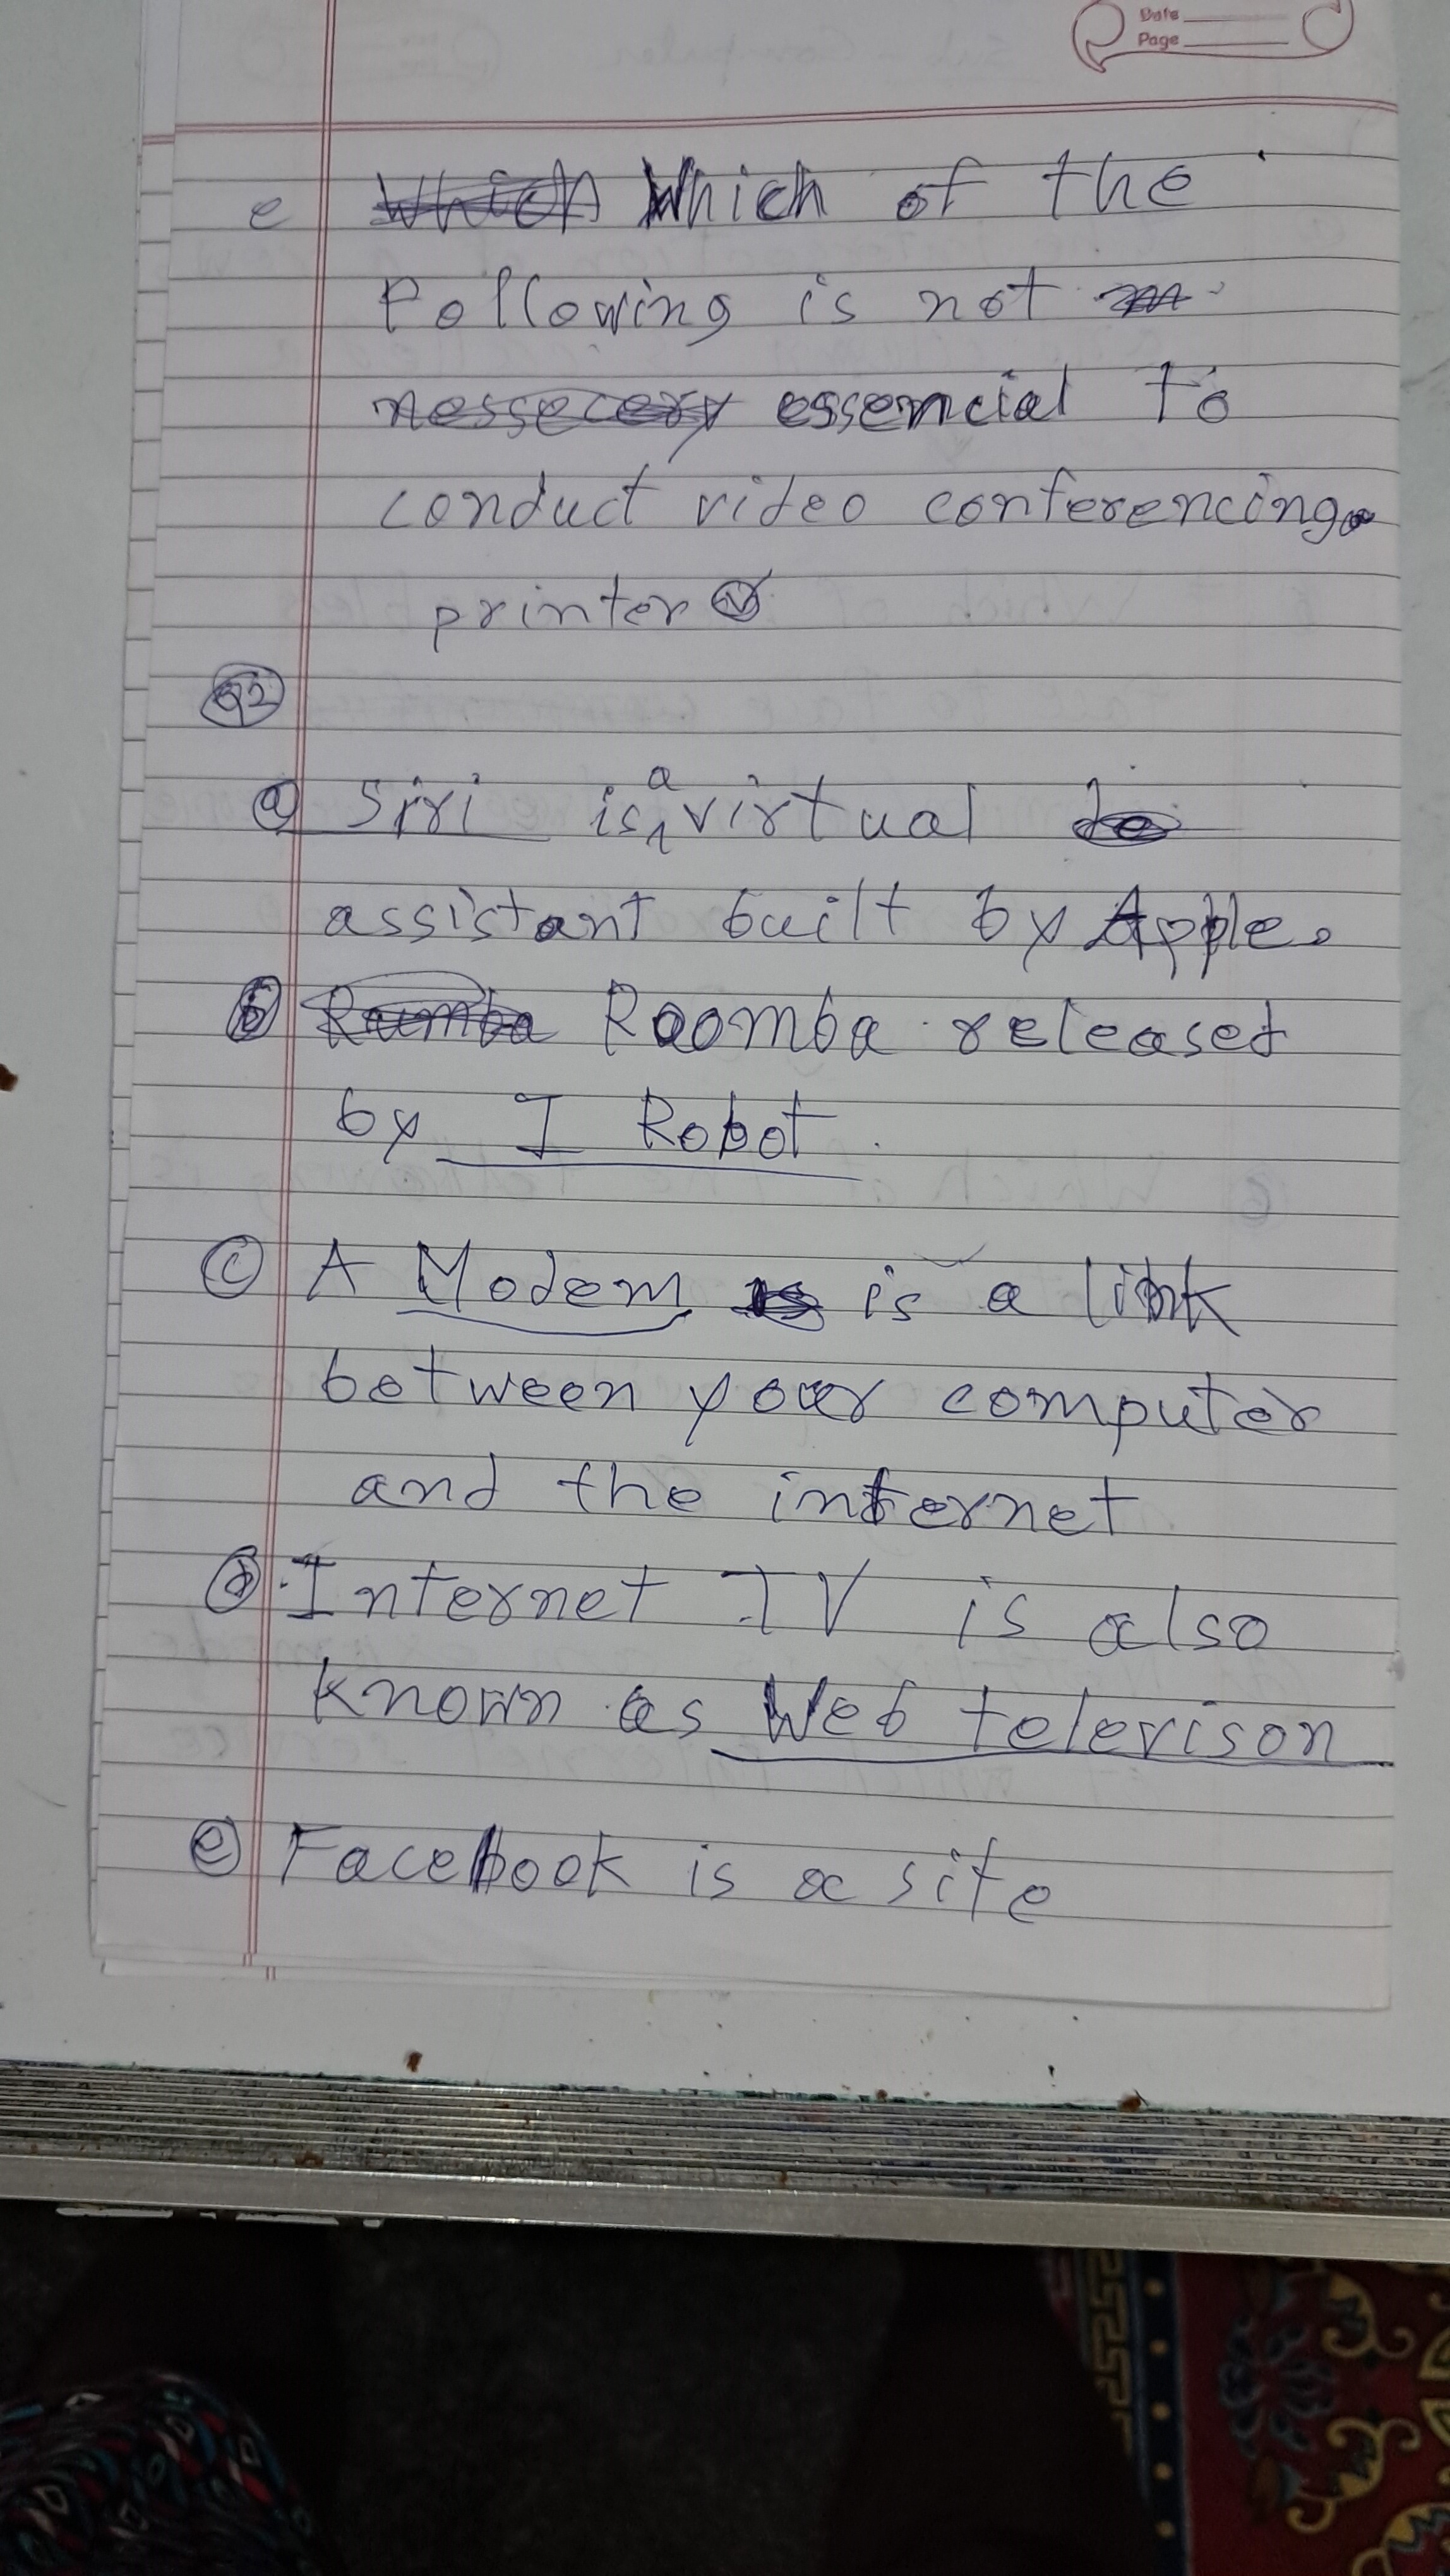 Date
Page
e Which Which of the
Following is not
nessecery essencial to
conduct video conferencing.
printer
Q2
a Siri is a virtual
assistant built by Apple.
b Roomba Roomba released
by I Robot.
c A Modem is is a link
between your computer
and the internet
d Internet TV is also
known as Web televison
e Facebook is a site